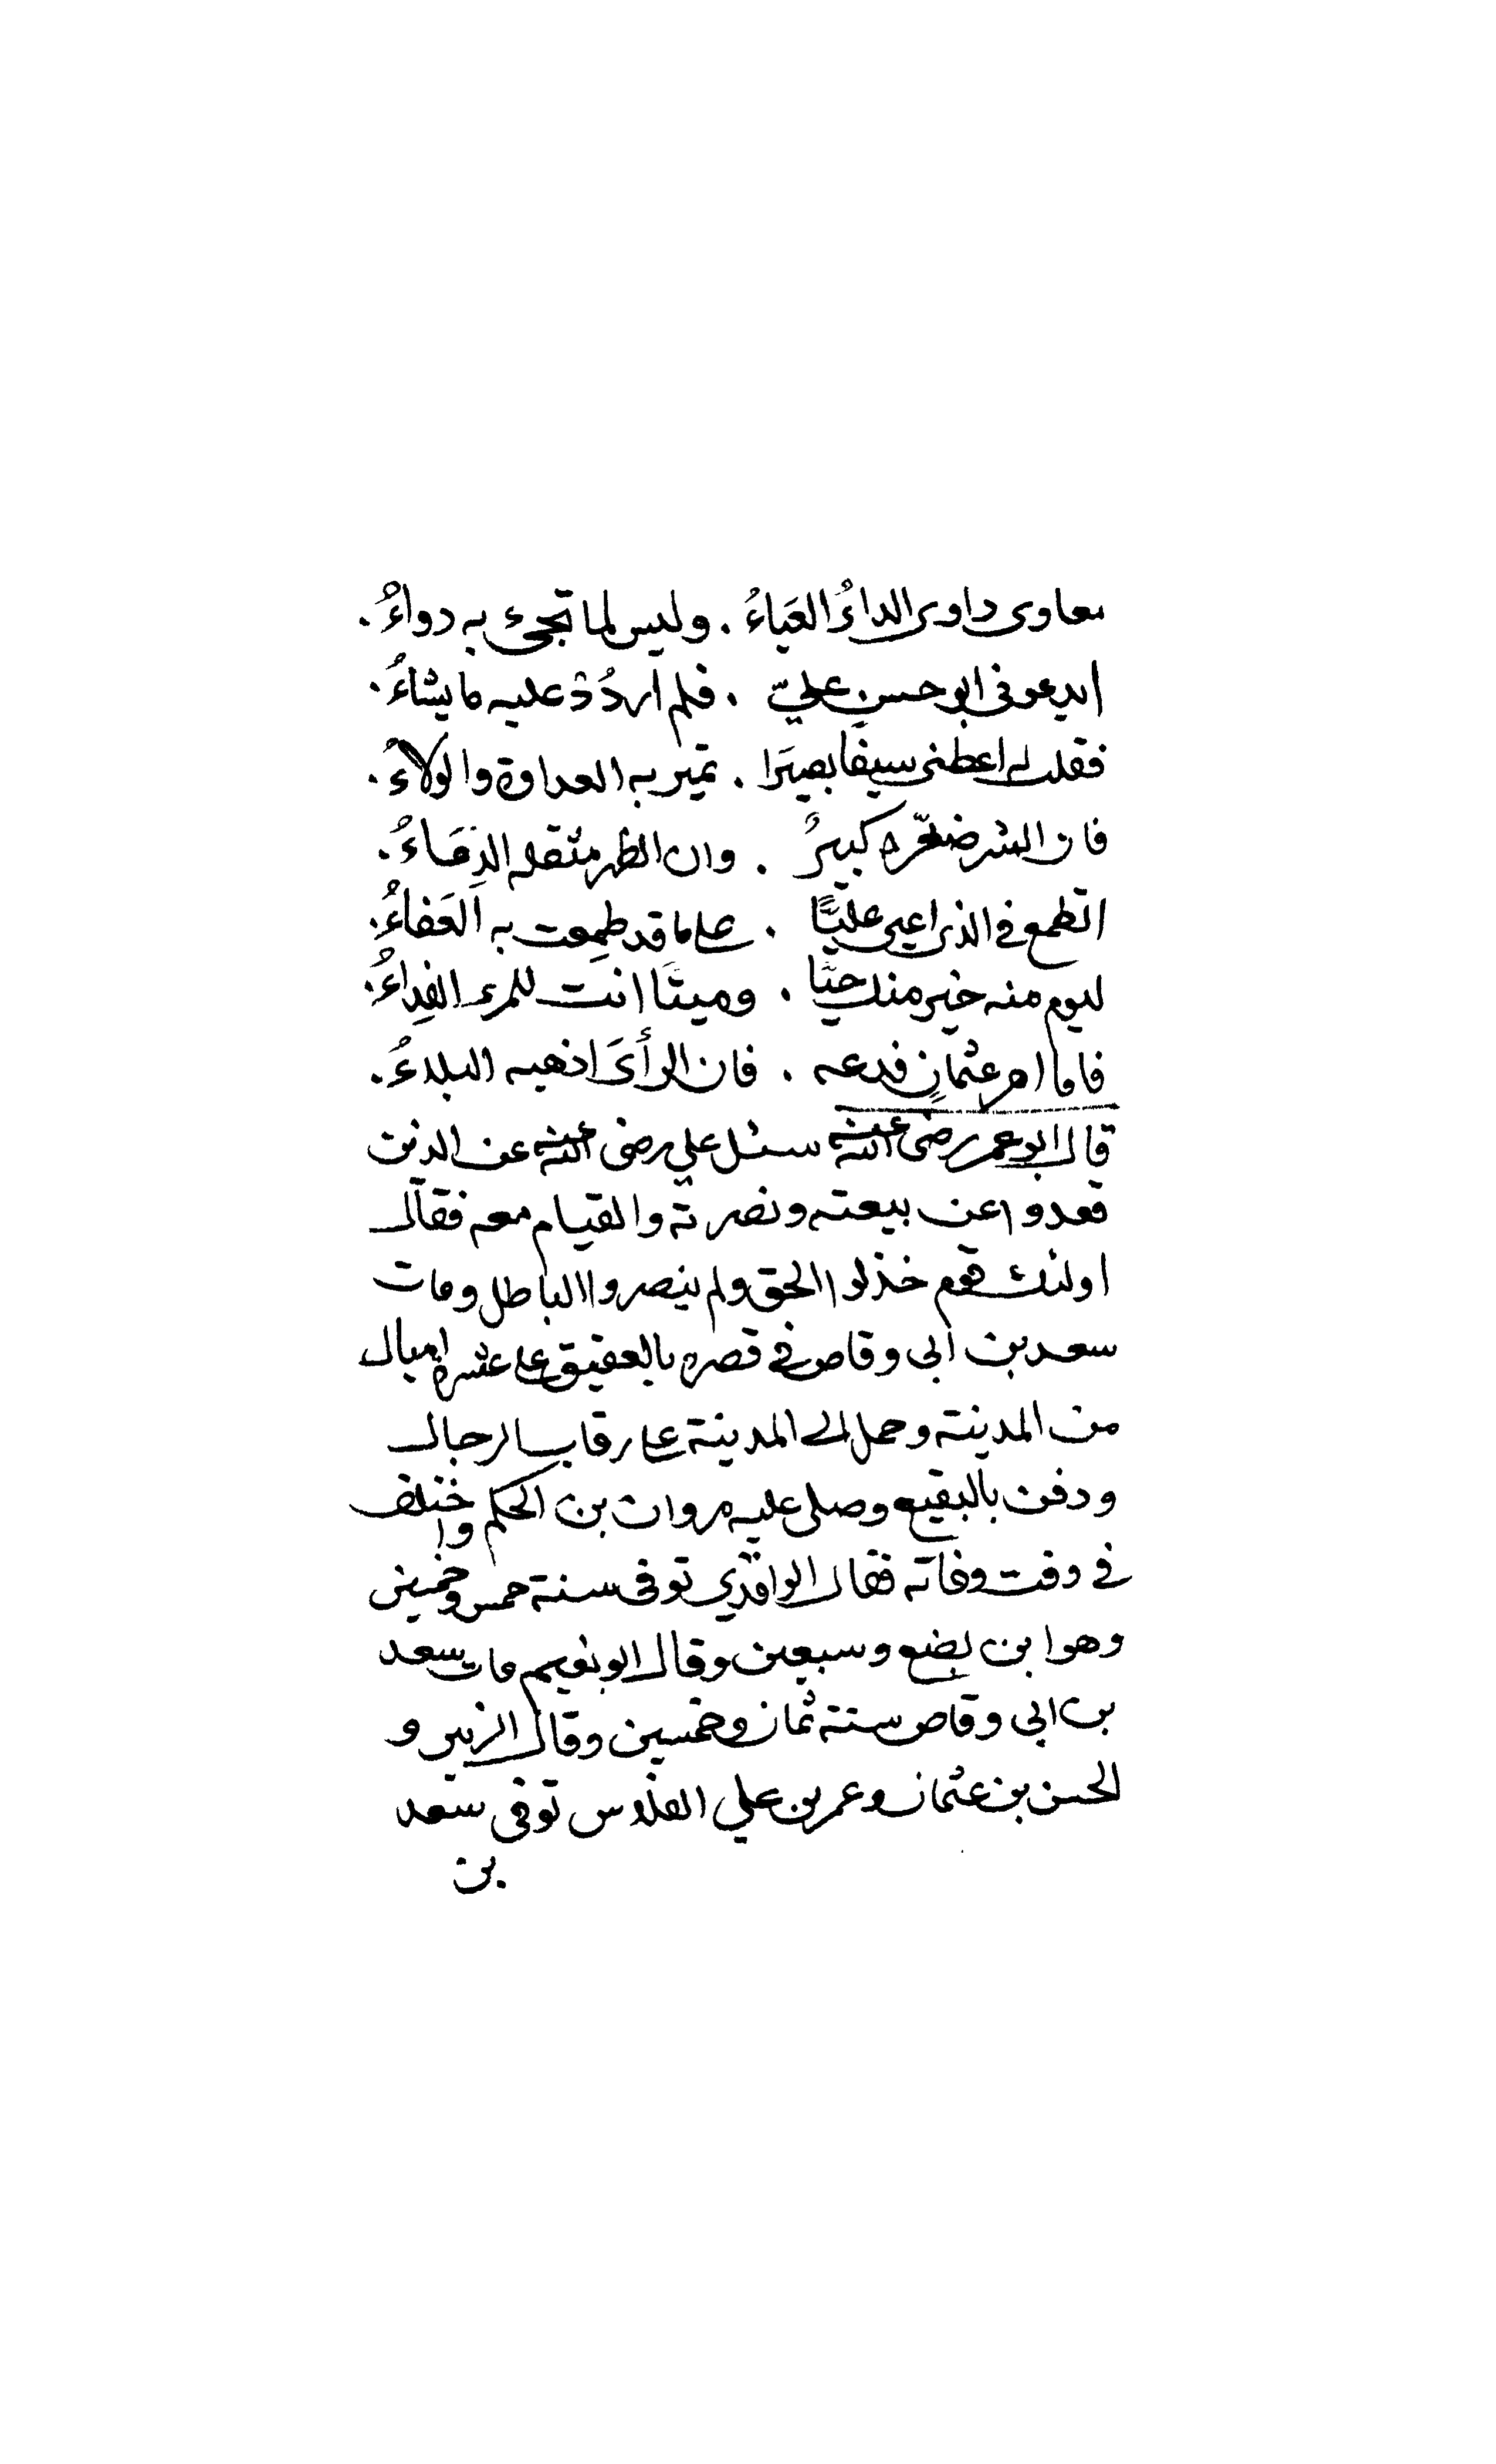 معاوى داوى الداءُ العَياءُ . وليس لما تجئ به دواءُ .
ايدعونى ابو حسن عليّ . فلم اردُدْ عليه ما يشاءُ .
فقلت له اعطنى سيفًا بصيرًا . تميز به العداوة والولاءُ .
فان الشر ضغره كبيرٌ . وان الظهر مثقله الدِمَاءُ .
اتطمع فى الذى اعيى عليًّا . على ما قد طمِعت به العَفاءُ .
ليوم منه خير منك حيًّا . وميتًا انت للمرء الفِداءُ .
فاما امر عثمانٍ فدعه . فان الرأىَ اذهبه البلاءُ .
قال ابو عمر رضى الله عنه سئل علي رضى الله عنه عن الذين
قعدوا عن بيعته ونصرته والقيام معه فقال
اولئك قوم خذلوا الحق ولم ينصروا الباطل ومات
سعد بن ابى وقاص فى قصره بالعقيق على عشرة اميال
من المدينة وحمل الى المدينة على رقاب الرجال
ودفن بالبقيع وصلى عليه مروان بن الحكم واختلف
فى وقت وفاته فقال الواقدي توفى سنة خمس وخمسين
وهو ابن بضع وسبعين وقال ابو نعيم مات سعد
بن ابى وقاص سنة ثمان وخمسين وقال الزبير و
الحسن بن عثمان وعمر بن علي الفلاس توفى سعد
بن